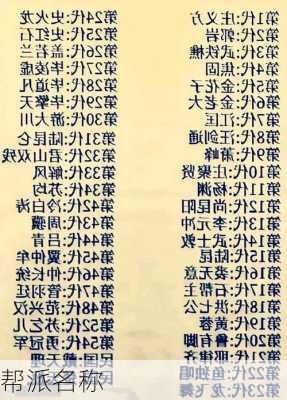 第1代:庄义方
第2代:郭岩
第3代:武铁樵
第4代:焦固
第5代:金花子
第6代:金老大
第7代:江匡
第8代:汪剑通
第9代:萧峰
第10代:庄聚贤
第11代:杨渊
第12代:尚昆阳
第13代:李元冲
第14代:武士敦
第15代:陆昆
第16代:裘无意
第17代:石带主
第18代:洪七公
第19代:黄蓉
第20代:鲁有脚
第21代:耶律齐
第22代:鱼独唱
第23代:龙飞舞
第24代:史火龙
第25代:史红石
第26代:盖若兰
第27代:毕凌虚
第28代:毕道凡
第29代:毕擎天
第30代:游大川
第31代:陆昆仑
第32代:君山双残
第33代:解风
第34代:苏均
第42代:冷白涛
第43代:周骥
第44代:吕肯
第45代:翼仲牟
第46代:仲长统
第47代:管羽延
第48代:范兴汉
第52代:苏乞儿
第54代:勇冠军
民国:戴天理
帮派名称